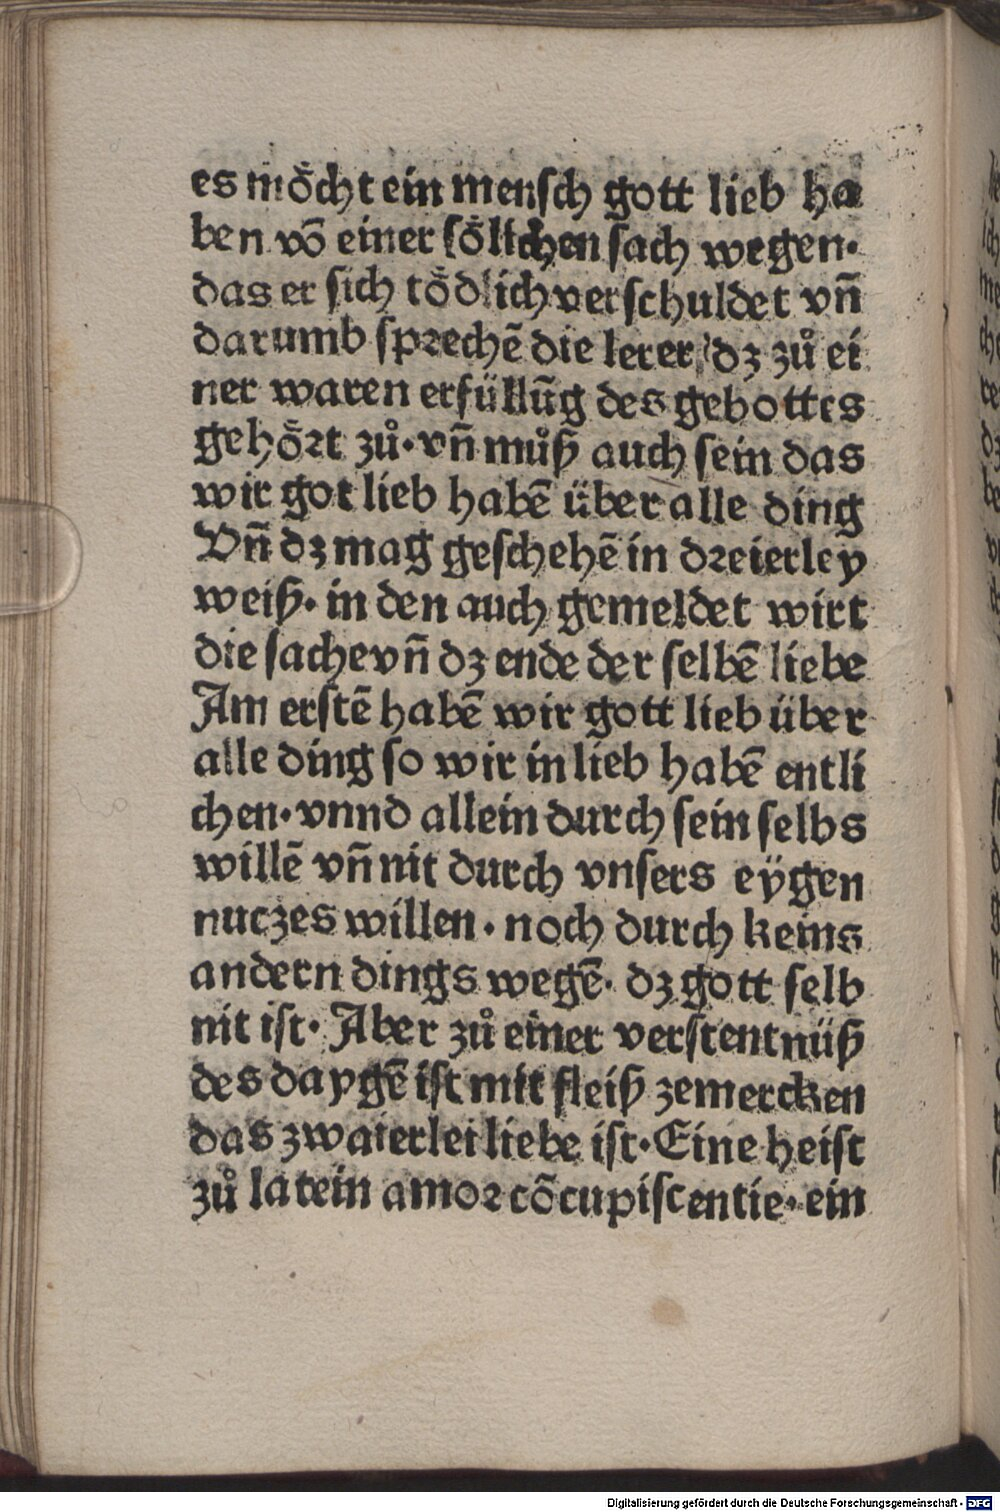 es möcht ein mensch gott lieb ha
ben võ einer söllichen sach wegen·
das er sich tödlich verschuldet vñ
darumb sprechẽ die lerer / dz zů ei
ner waren erfüllũg des gebottes
gehört zů· vñ můß auch sein das
wir got lieb habẽ über alle ding
Vñ dz mag geschehẽ in dreierley
weiß· in den auch gemeldet wirt
die sache vñ dz ende der selbẽ liebe
Am erstẽ habẽ wir gott lieb über
alle ding so wir in lieb habẽ entli
chen· vnnd allein durch sein selbs
willẽ vñ nit durch vnsers eÿgen
nuczes willen· noch durch keins
andern dings wegẽ· dz gott selb
nit ist· Aber zů einer verstentnüß
des daygẽ ist mit fleiß zemercken
das zwaierlei liebe ist· Eine heist
zů latein amor cõcupiscentie· ein
Digitalisierung gefördert durch die Deutsche Forschungsgemeinschaft - DFG